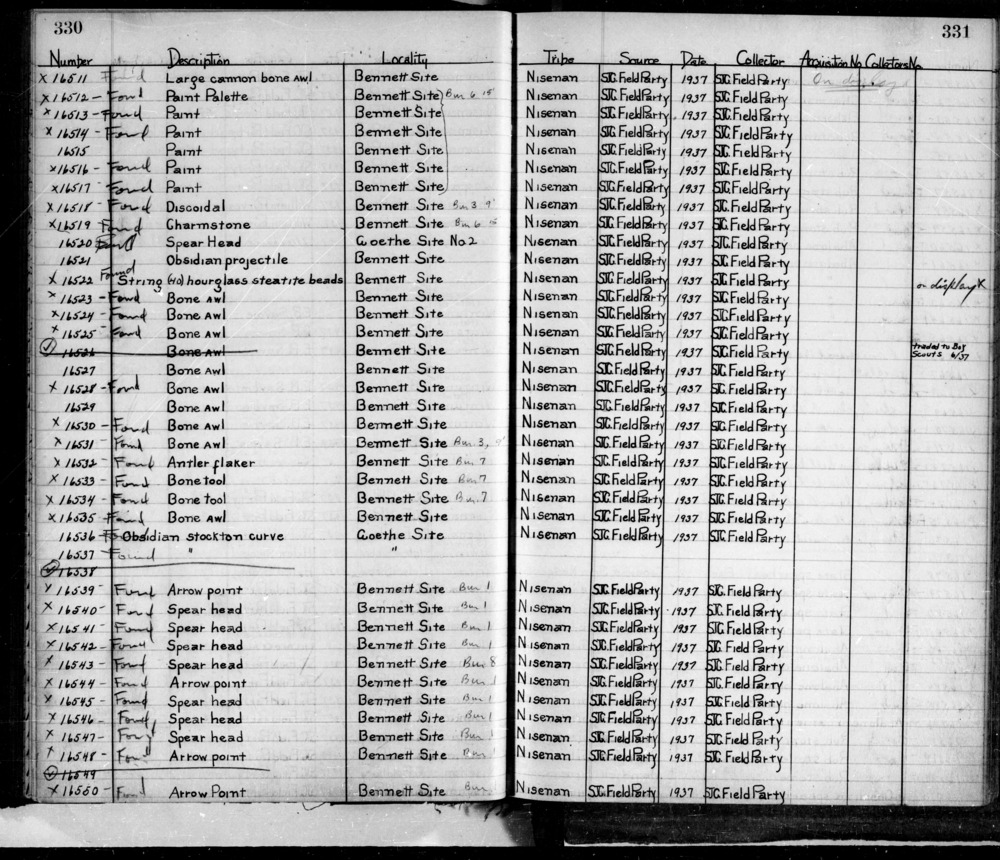 330 331
Number Description Locality Tribe Source Date Collector Acquisition No Collectors No.
x 16511 Found Large cannon bone awl Bennett Site Nisenan SJC Field Party 1937 SJC Field Party On display
x 16512 - Found Paint Palette Bennett Site Bur 6 15" Nisenan SJC Field Party 1937 SJC Field Party
x 16513 - Found Paint Bennett Site Nisenan SJC Field Party 1937 SJC Field Party
x 16514 - Found Paint Bennett Site Nisenan SJC Field Party 1937 SJC Field Party
16515 Paint Bennett Site Nisenan SJC Field Party 1937 SJC Field Party
x 16516 - Found Paint Bennett Site Nisenan SJC Field Party 1937 SJC Field Party
x 16517 - Found Paint Bennett Site Nisenan SJC Field Party 1937 SJC Field Party
x 16518 - Found Discoidal Bennett Site Bur 3 9" Nisenan SJC Field Party 1937 SJC Field Party
x 16519 Found Charmstone Bennett Site Bur 6 15" Nisenan SJC Field Party 1937 SJC Field Party
16520 Found Spear Head Goethe Site No 2 Nisenan SJC Field Party 1937 SJC Field Party
16521 Obsidian projectile Bennett Site Nisenan SJC Field Party 1937 SJC Field Party
x 16522 Found String (40) hourglass steatite beads Bennett Site Nisenan SJC Field Party 1937 SJC Field Party on display x
x 16523 - Found Bone Awl Bennett Site Nisenan SJC Field Party 1937 SJC Field Party
x 16524 - Found Bone Awl Bennett Site Nisenan SJC Field Party 1937 SJC Field Party
x 16525 - Found Bone Awl Bennett Site Nisenan SJC Field Party 1937 SJC Field Party
16526 Bone Awl Bennett Site Nisenan SJC Field Party 1937 SJC Field Party traded to Boy Scouts 6/37
16527 Bone Awl Bennett Site Nisenan SJC Field Party 1937 SJC Field Party
x 16528 - Found Bone Awl Bennett Site Nisenan SJC Field Party 1937 SJC Field Party
16529 Bone Awl Bennett Site Nisenan SJC Field Party 1937 SJC Field Party
x 16530 - Found Bone Awl Bennett Site Nisenan SJC Field Party 1937 SJC Field Party
x 16531 - Found Bone Awl Bennett Site Bur 3, 9" Nisenan SJC Field Party 1937 SJC Field Party
x 16532 - Found Antler flaker Bennett Site Bur 7 Nisenan SJC Field Party 1937 SJC Field Party
x 16533 - Found Bone tool Bennett Site Bur 7 Nisenan SJC Field Party 1937 SJC Field Party
x 16534 - Found Bone tool Bennett Site Bur 7 Nisenan SJC Field Party 1937 SJC Field Party
x 16535 - Found Bone Awl Bennett Site Nisenan SJC Field Party 1937 SJC Field Party
16536 - Found Obsidian stockton curve Goethe Site Nisenan SJC Field Party 1937 SJC Field Party
16537 - Found " "
16538
x 16539 - Found Arrow point Bennett Site Bur 1 Nisenan SJC Field Party 1937 SJC Field Party
x 16540 - Found Spear head Bennett Site Bur 1 Nisenan SJC Field Party 1937 SJC Field Party
x 16541 - Found Spear head Bennett Site Bur 1 Nisenan SJC Field Party 1937 SJC Field Party
x 16542 - Found Spear head Bennett Site Bur 1 Nisenan SJC Field Party 1937 SJC Field Party
x 16543 - Found Spear head Bennett Site Bur 8 Nisenan SJC Field Party 1937 SJC Field Party
x 16544 - Found Arrow point Bennett Site Bur 1 Nisenan SJC Field Party 1937 SJC Field Party
x 16545 - Found Spear head Bennett Site Bur 1 Nisenan SJC Field Party 1937 SJC Field Party
x 16546 - Found Spear head Bennett Site Bur 1 Nisenan SJC Field Party 1937 SJC Field Party
x 16547 - Found Spear head Bennett Site Bur 1 Nisenan SJC Field Party 1937 SJC Field Party
x 16548 - Found Arrow point Bennett Site Bur 1 Nisenan SJC Field Party 1937 SJC Field Party
16549
x 16550 - Found Arrow Point Bennett Site Bur Nisenan SJC Field Party 1937 SJC Field Party